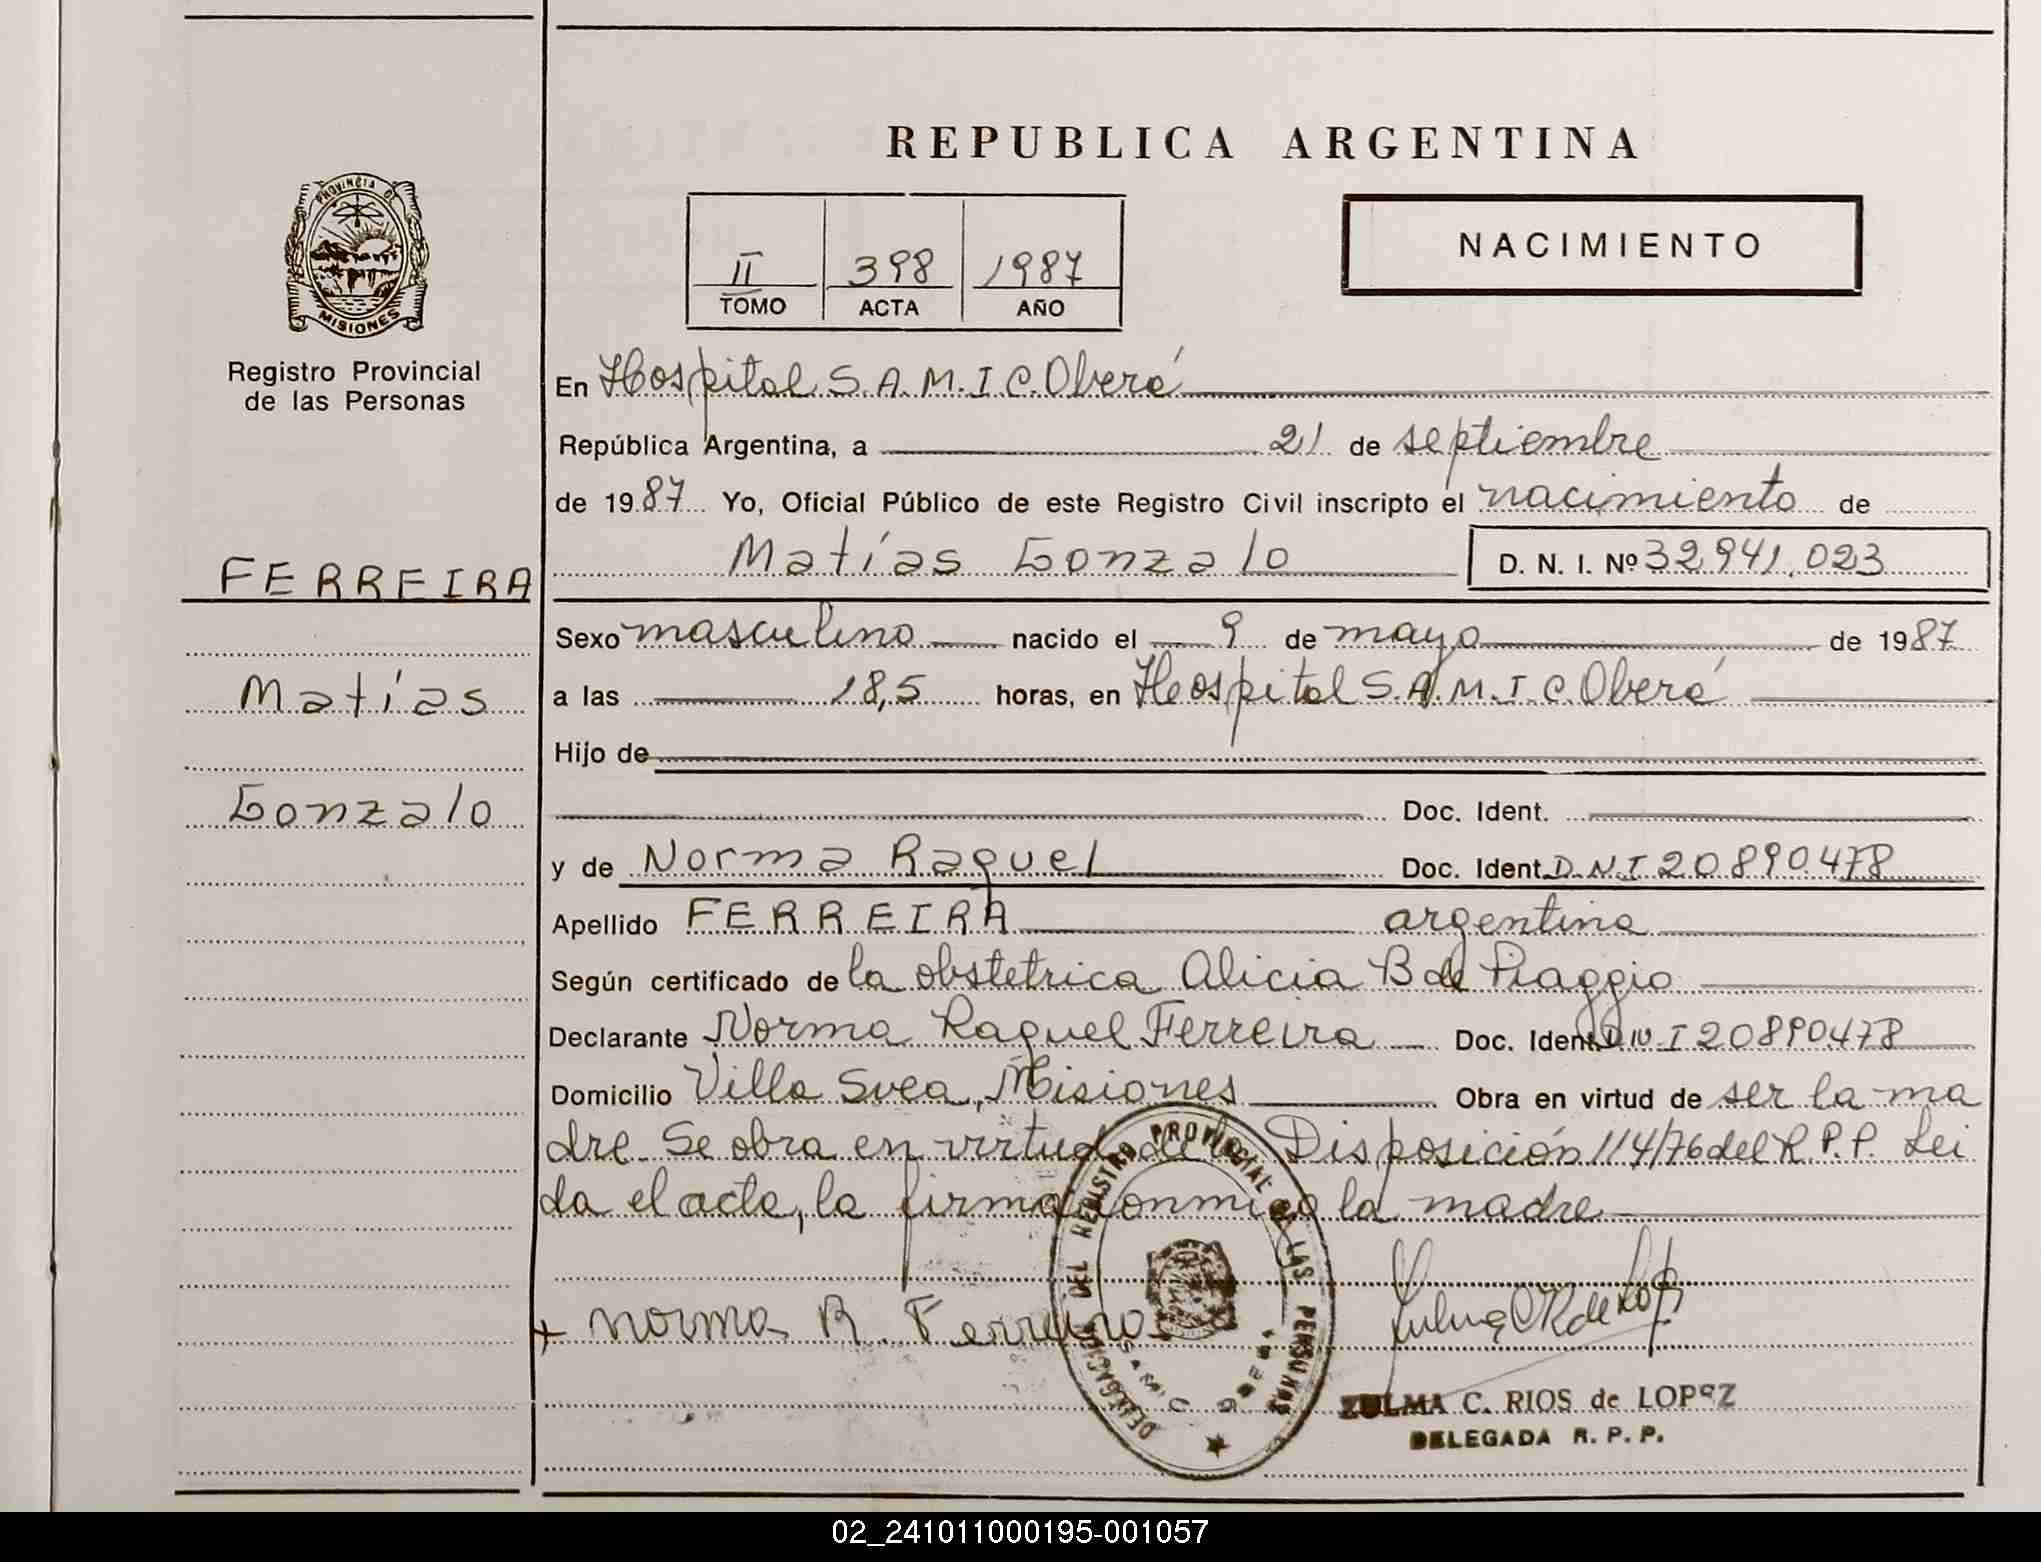 REPUBLICA ARGENTINA
PROVINCIA DE
MISIONES
Registro Provincial
de las Personas
II 398 1987
TOMO ACTA AÑO
NACIMIENTO
En Hospital S.A.M.I.C. Oberá
República Argentina, a 21 de septiembre
de 1987 Yo, Oficial Público de este Registro Civil inscripto el nacimiento de
FERREIRA
Matías Gonzalo D. N. I. Nº 32.941.023
Sexo masculino nacido el 9 de mayo de 1987
Matías
a las 18,5 horas, en Hospital S.A.M.I.C. Oberá
Hijo de
Gonzalo
Doc. Ident.
y de Norma Raquel Doc. Ident. D.N.I 20890478
Apellido FERREIRA argentina
Según certificado de la obstetrica Alicia B de Piaggio
Declarante Norma Raquel Ferreira Doc. Ident. DNI 20890478
Domicilio Villa Svea, Misiones Obra en virtud de ser la ma
dre. Se obra en virtud de la Disposición 114/76 del R.P.P. Lei
da el acta, la firma conmigo la madre
+ Norma R. Ferreira
DELEGACION DEL REGISTRO PROVINCIAL DE LAS PERSONAS
ZULMA C. RIOS de LOPEZ
DELEGADA R. P. P.
02_241011000195-001057